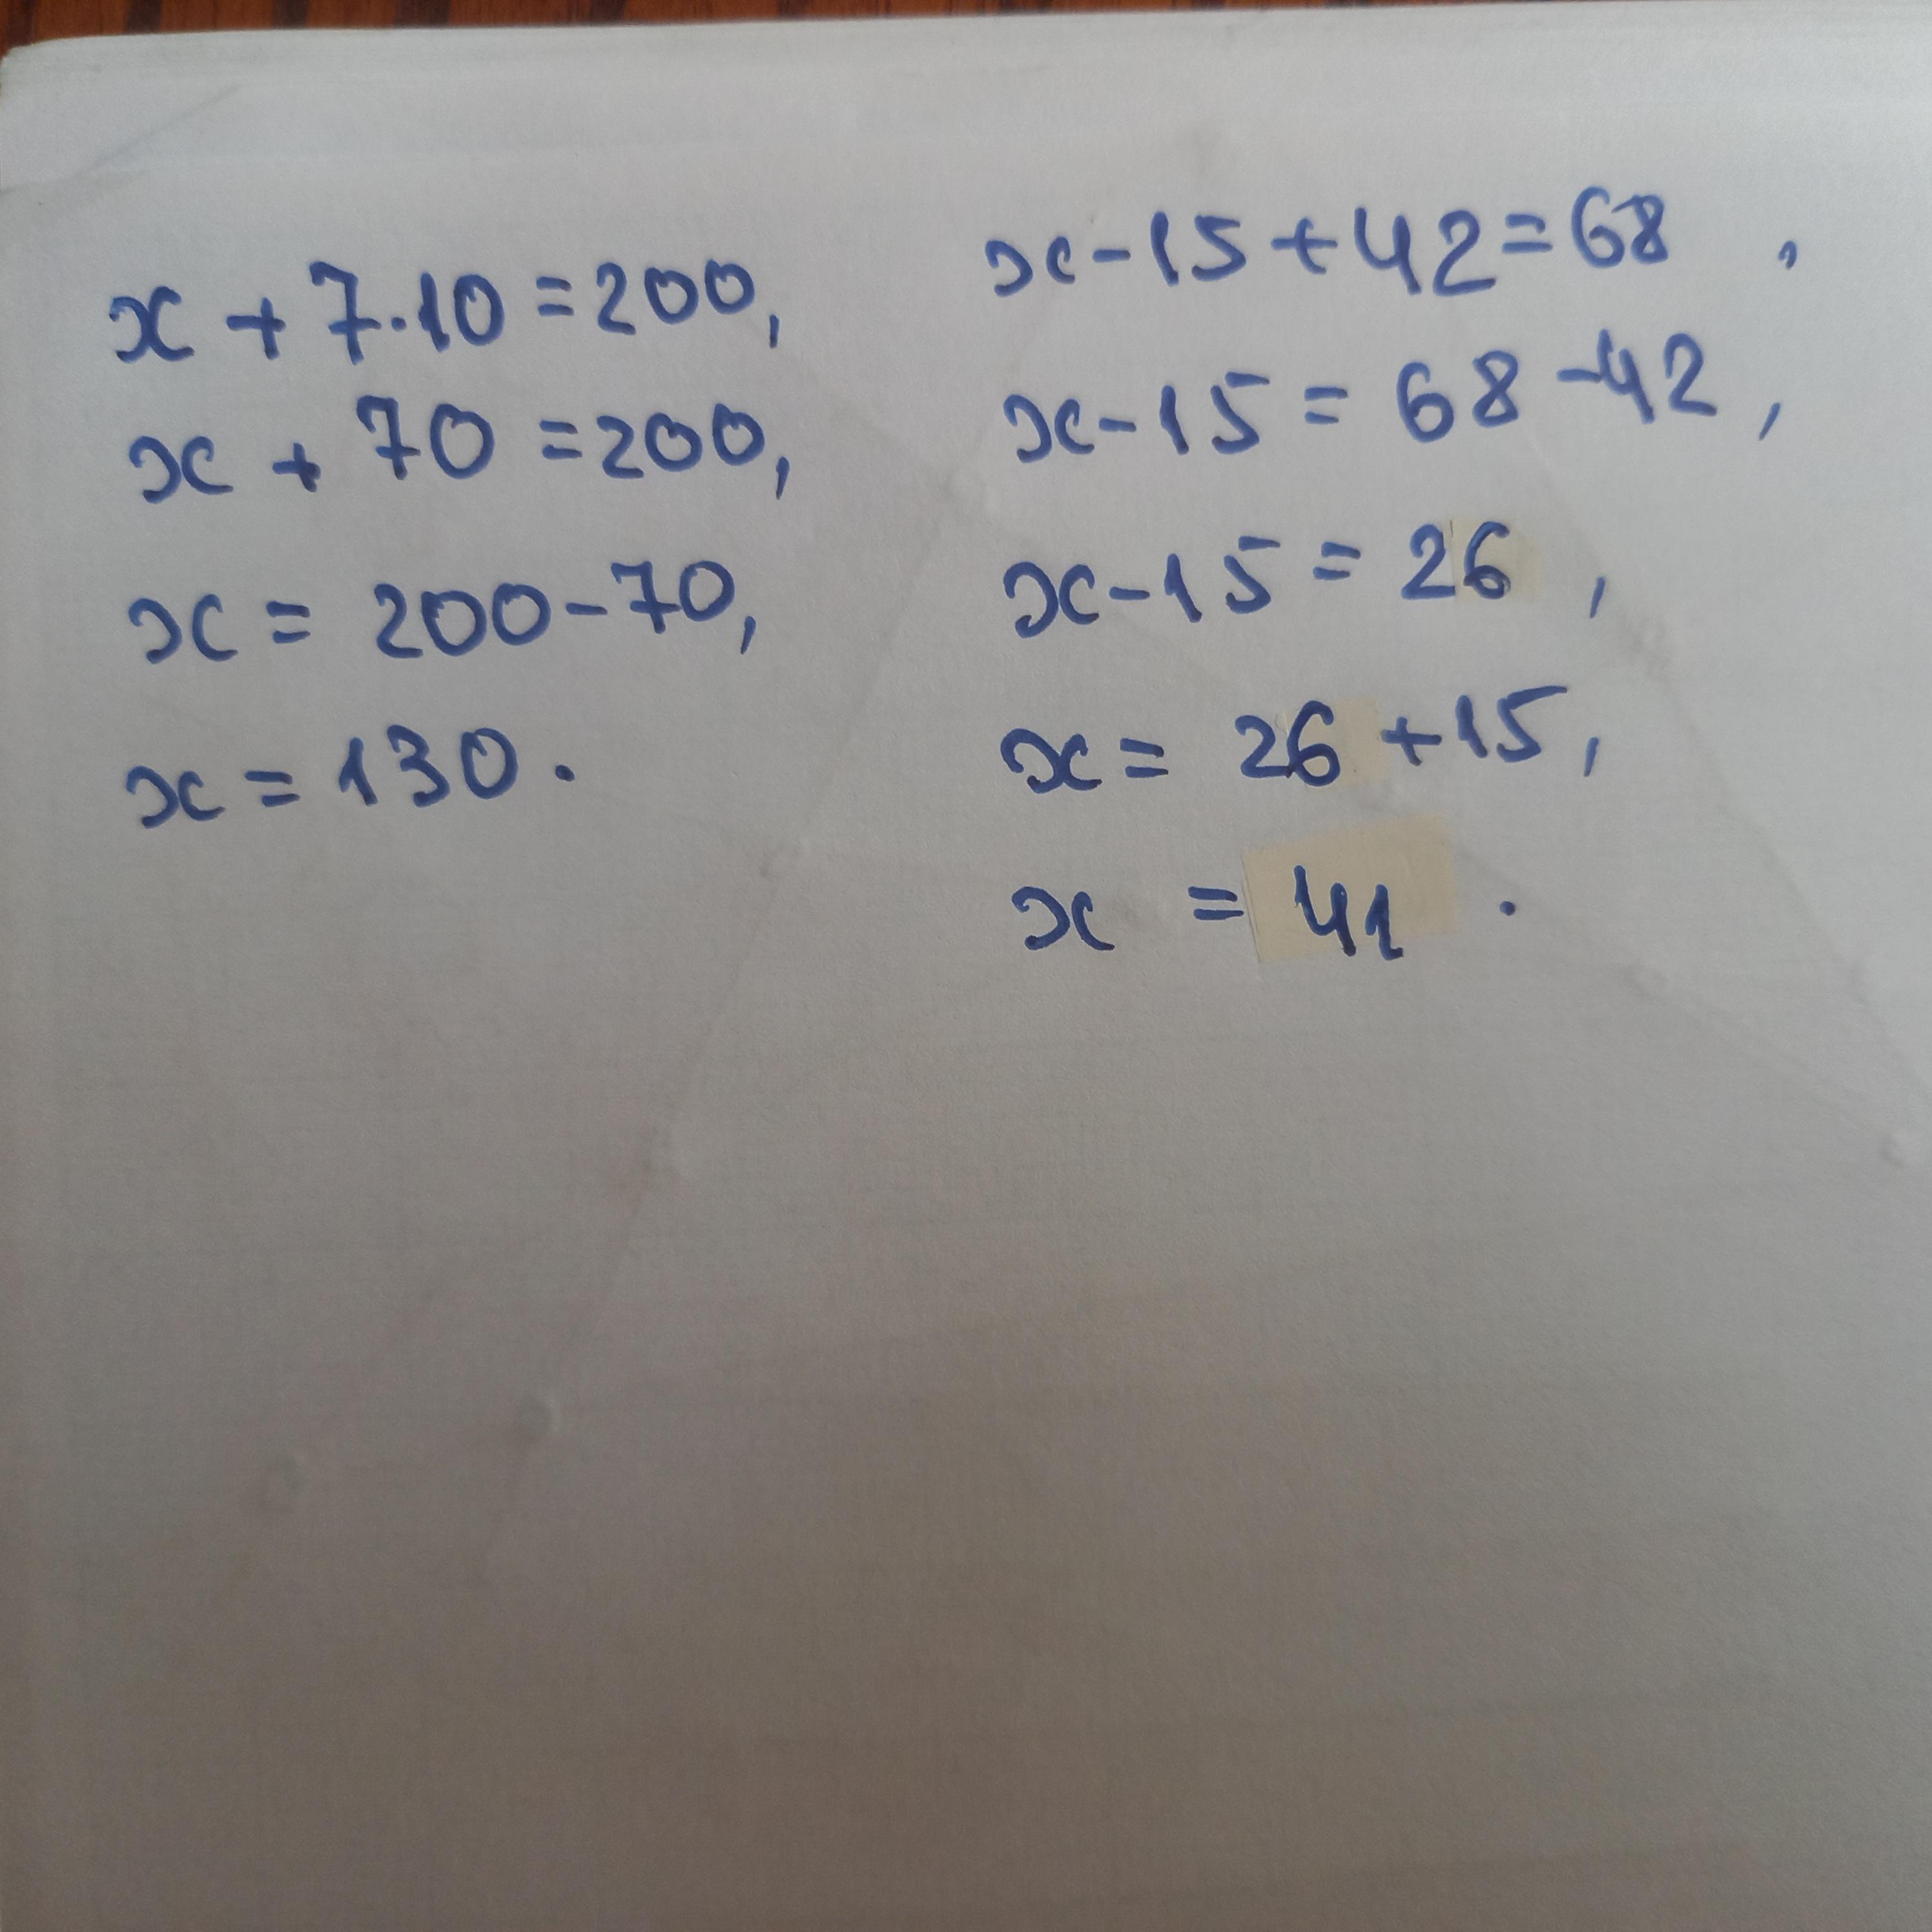 x + 7·10 = 200,
x + 70 = 200,
x = 200 - 70,
x = 130.
x - 15 + 42 = 68,
x - 15 = 68 - 42,
x - 15 = 26,
x = 26 + 15,
x = 41.